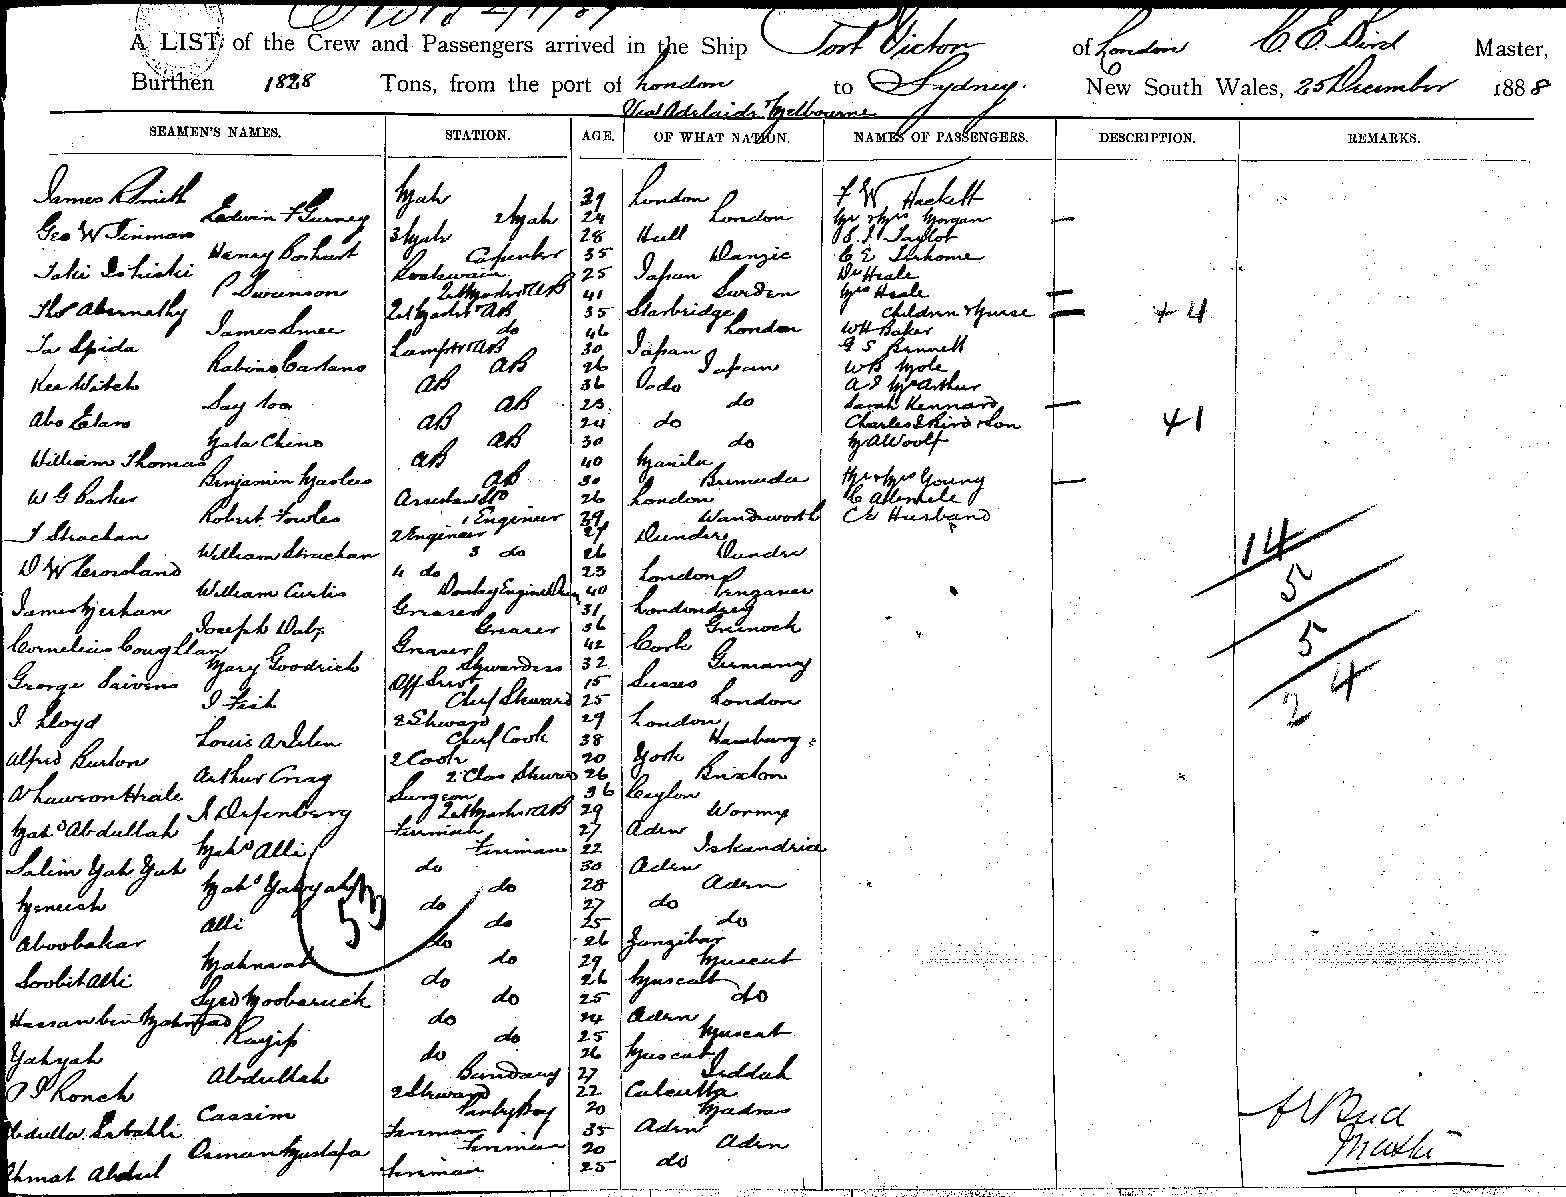 A LIST of the Crew and Passengers arrived in the Ship Port Victor of London C E Bird Master,
Burthen 1828 Tons, from the port of London to Sydney. New South Wales, 25 December 1888
Via Adelaide & Melbourne
SEAMEN'S NAMES. STATION. AGE. OF WHAT NATION. NAMES OF PASSENGERS. DESCRIPTION. REMARKS.
James R Smith Mate 39 London F W Hackett
Edwin F Gurney 2 Mate 24 London Mr & Mrs Morgan —
Geo W Tinman 3 Mate 28 Hull S. J. Taylor
Henry Boshart Carpenter 35 Danzic C E
Boatswain 25 Japan Dr Heale
P Swenson 41 Sweden Mrs Heale —
Thos Abernethy 35 Starbridge Children & Nurse — + 4
James Smee do 46 London W H Baker
Ta Spida Lamps & AB 30 Japan G S Bennett
AB 26 Japan W B Mole
AB 36 do A J McArthur
Say Loo AB 23 do Sarah Kennard —
Abo AB 24 do Charles & Son +1
Mata Chino AB 30 do M A Woolf
William Thomas AB 40 Manila
Benjamin AB 30 Bermuda Mr & Mrs Young —
W G Barker 26 London C
Robert Fowles 1 Engineer 39 Wandsworth C E Husband
J Strachan 2 Engineer 27 Dundee 14
William Strachan 3 do 26 Dundee
D W Crossland 4 do 23 London 5
William Curtis Donkey Engine 40 Penzance
James Greaser 31 Londonderry
Joseph Daly Greaser 36 Greenock 5
Cornelius Coughlan Greaser 42 Cork
Mary Goodrich Stewardess 32 Germany
George 15 Sussex 24
J Fish Chief Steward 25 London
J Lloyd 2 Steward 29 London
Louis Chief Cook 38 Hamburg
Alfred Burton 2 Cook 20 York
Arthur 2 Class Steward 26 Brixton
A Lawson Heale Surgeon 36 Ceylon
29 Worms
Mahd Abdullah Fireman 27 Aden
Mahd Alli Fireman 22 Iskandria
Salim Yah Yah do 30 Aden
Mahd Yahyah do 28 Aden
do 27 do
53
Alli do 25 do
Aboobakar do 26 Zanzibar
do 29 Muscat
Soobit Alli do 26 Muscat
Syed Moobaruck do 25 do
Hassan bin do 24 Aden
Rayip do 25 Muscat
Yahyah do 26 Muscat
Abdullah 27 Jeddah
2 Steward 22 Calcutta
Cassim Pantry Boy 20 Madras
Abdulla Fireman 35 Aden
Osman Mustafa Fireman 20 Aden
Ahmat Abdul Fireman 25 do
C E Bird
Master